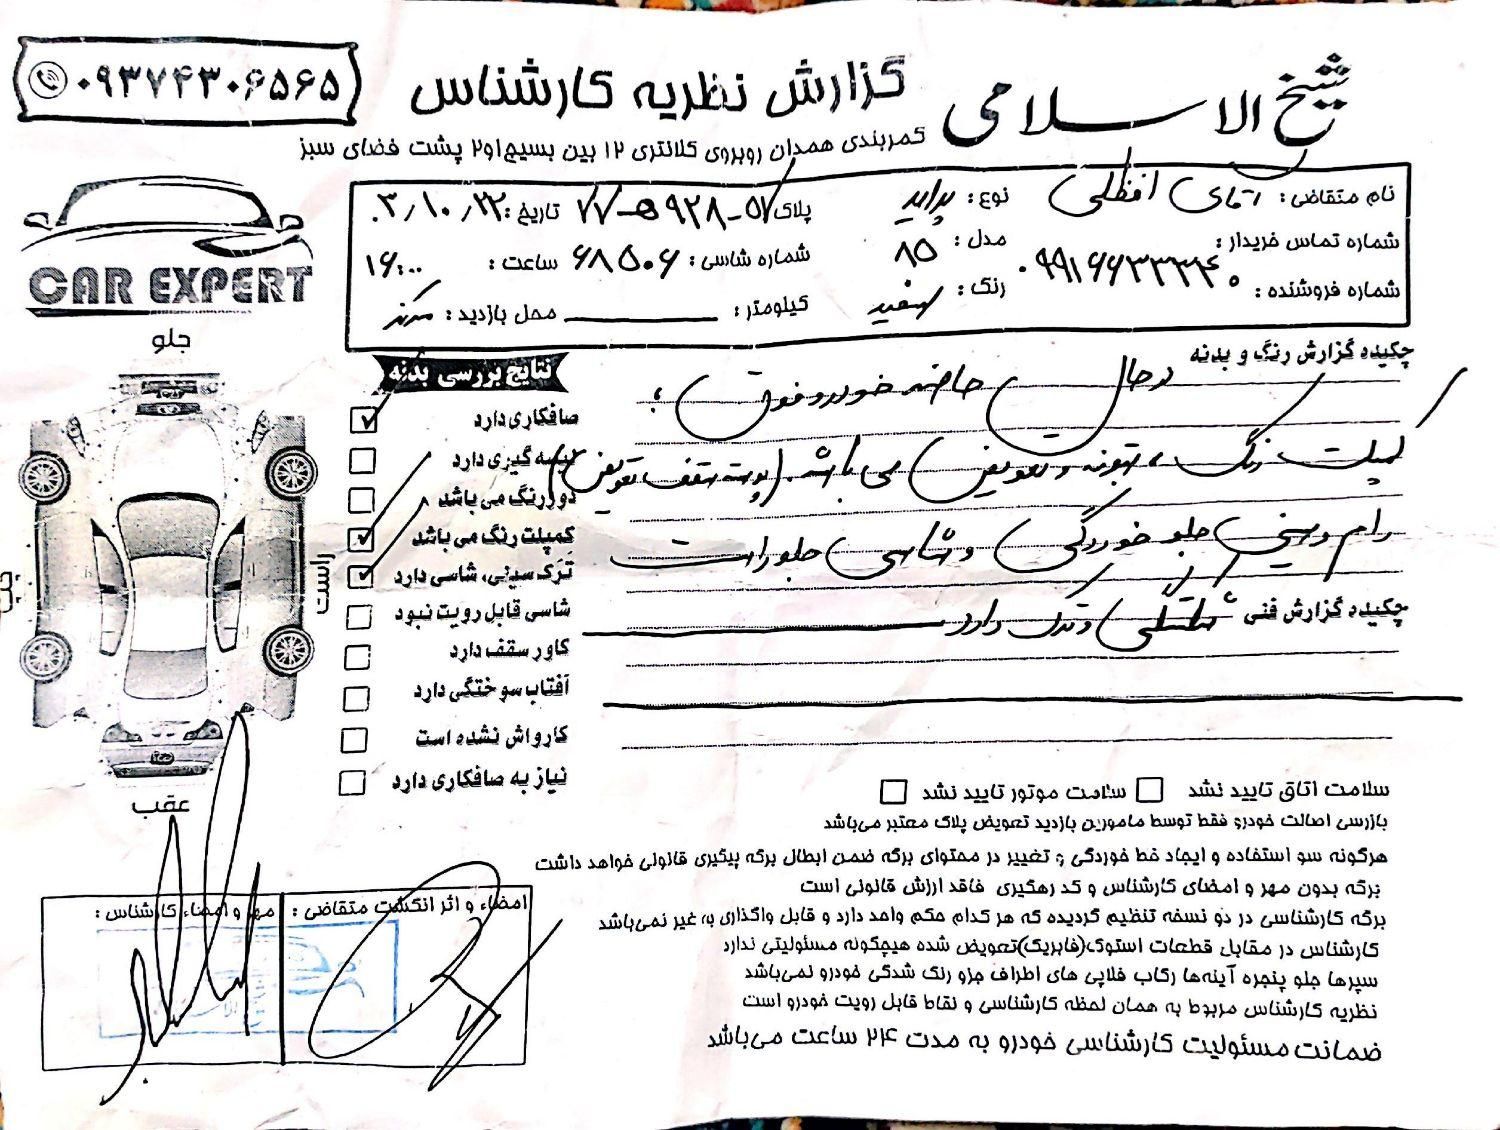 شیخ الاسلامی
گزارش نظریه کارشناس
۰۹۳۷۴۳۰۶۵۶۵
کمربندی همدان روبروی کلانتری ۱۲ بین بسیج ۱و۲ پشت فضای سبز
نام متقاضی: آقای
نوع: پراید
پلاک ۷۷-ه ۹۲۸-۵۷
تاریخ: ۰۳/۱۰/۲۲
شماره تماس خریدار:
مدل: ۸۵
شماره شاسی: ۶۸۵۰۶
ساعت: ۱۶:۰۰
شماره فروشنده: ۰۹۹۱۶۶۳۳۳۴۰
رنگ: سفید
کیلومتر:
محل بازدید: مرکز
CAR EXPERT
چکیده گزارش رنگ و بدنه
درحال حاضر خودرو فوق:
کمپلت رنگ، تعویض می باشد. (پوسته سقف تعویض)
رام و سینی جلو خوردگی و شاسی جلو راست
چکیده گزارش فنی
و ترک دارد
نتایج بررسی بدنه
صافکاری دارد
لیسه گیری دارد
دور رنگ می باشد
کمپلت رنگ می باشد
ترک سینی، شاسی دارد
شاسی قابل رویت نبود
کاور سقف دارد
آفتاب سوختگی دارد
کارواش نشده است
نیاز به صافکاری دارد
جلو
راست
چپ
عقب
سلامت اتاق تایید نشد
سلامت موتور تایید نشد
بازرسی اصالت خودرو فقط توسط مامورین بازدید تعویض پلاک معتبر می‌باشد
هرگونه سو استفاده و ایجاد خط خوردگی و تغییر در محتوای برگه ضمن ابطال برگه پیگیری قانونی خواهد داشت
برگه بدون مهر و امضای کارشناس و کد رهگیری فاقد ارزش قانونی است
برگه کارشناسی در دو نسخه تنظیم گردیده که هر کدام حکم واحد دارد و قابل واگذاری به غیر نمی‌باشد
کارشناس در مقابل قطعات استوک(فابریک)تعویض شده هیچگونه مسئولیتی ندارد
سپرها جلو پنجره آینه‌ها رکاب فلاپی های اطراف جزو رنگ شدگی خودرو نمی‌باشد
نظریه کارشناس مربوط به همان لحظه کارشناسی و نقاط قابل رویت خودرو است
ضمانت مسئولیت کارشناسی خودرو به مدت ۲۴ ساعت می‌باشد
امضاء و اثر انگشت متقاضی:
مهر و امضاء کارشناس: